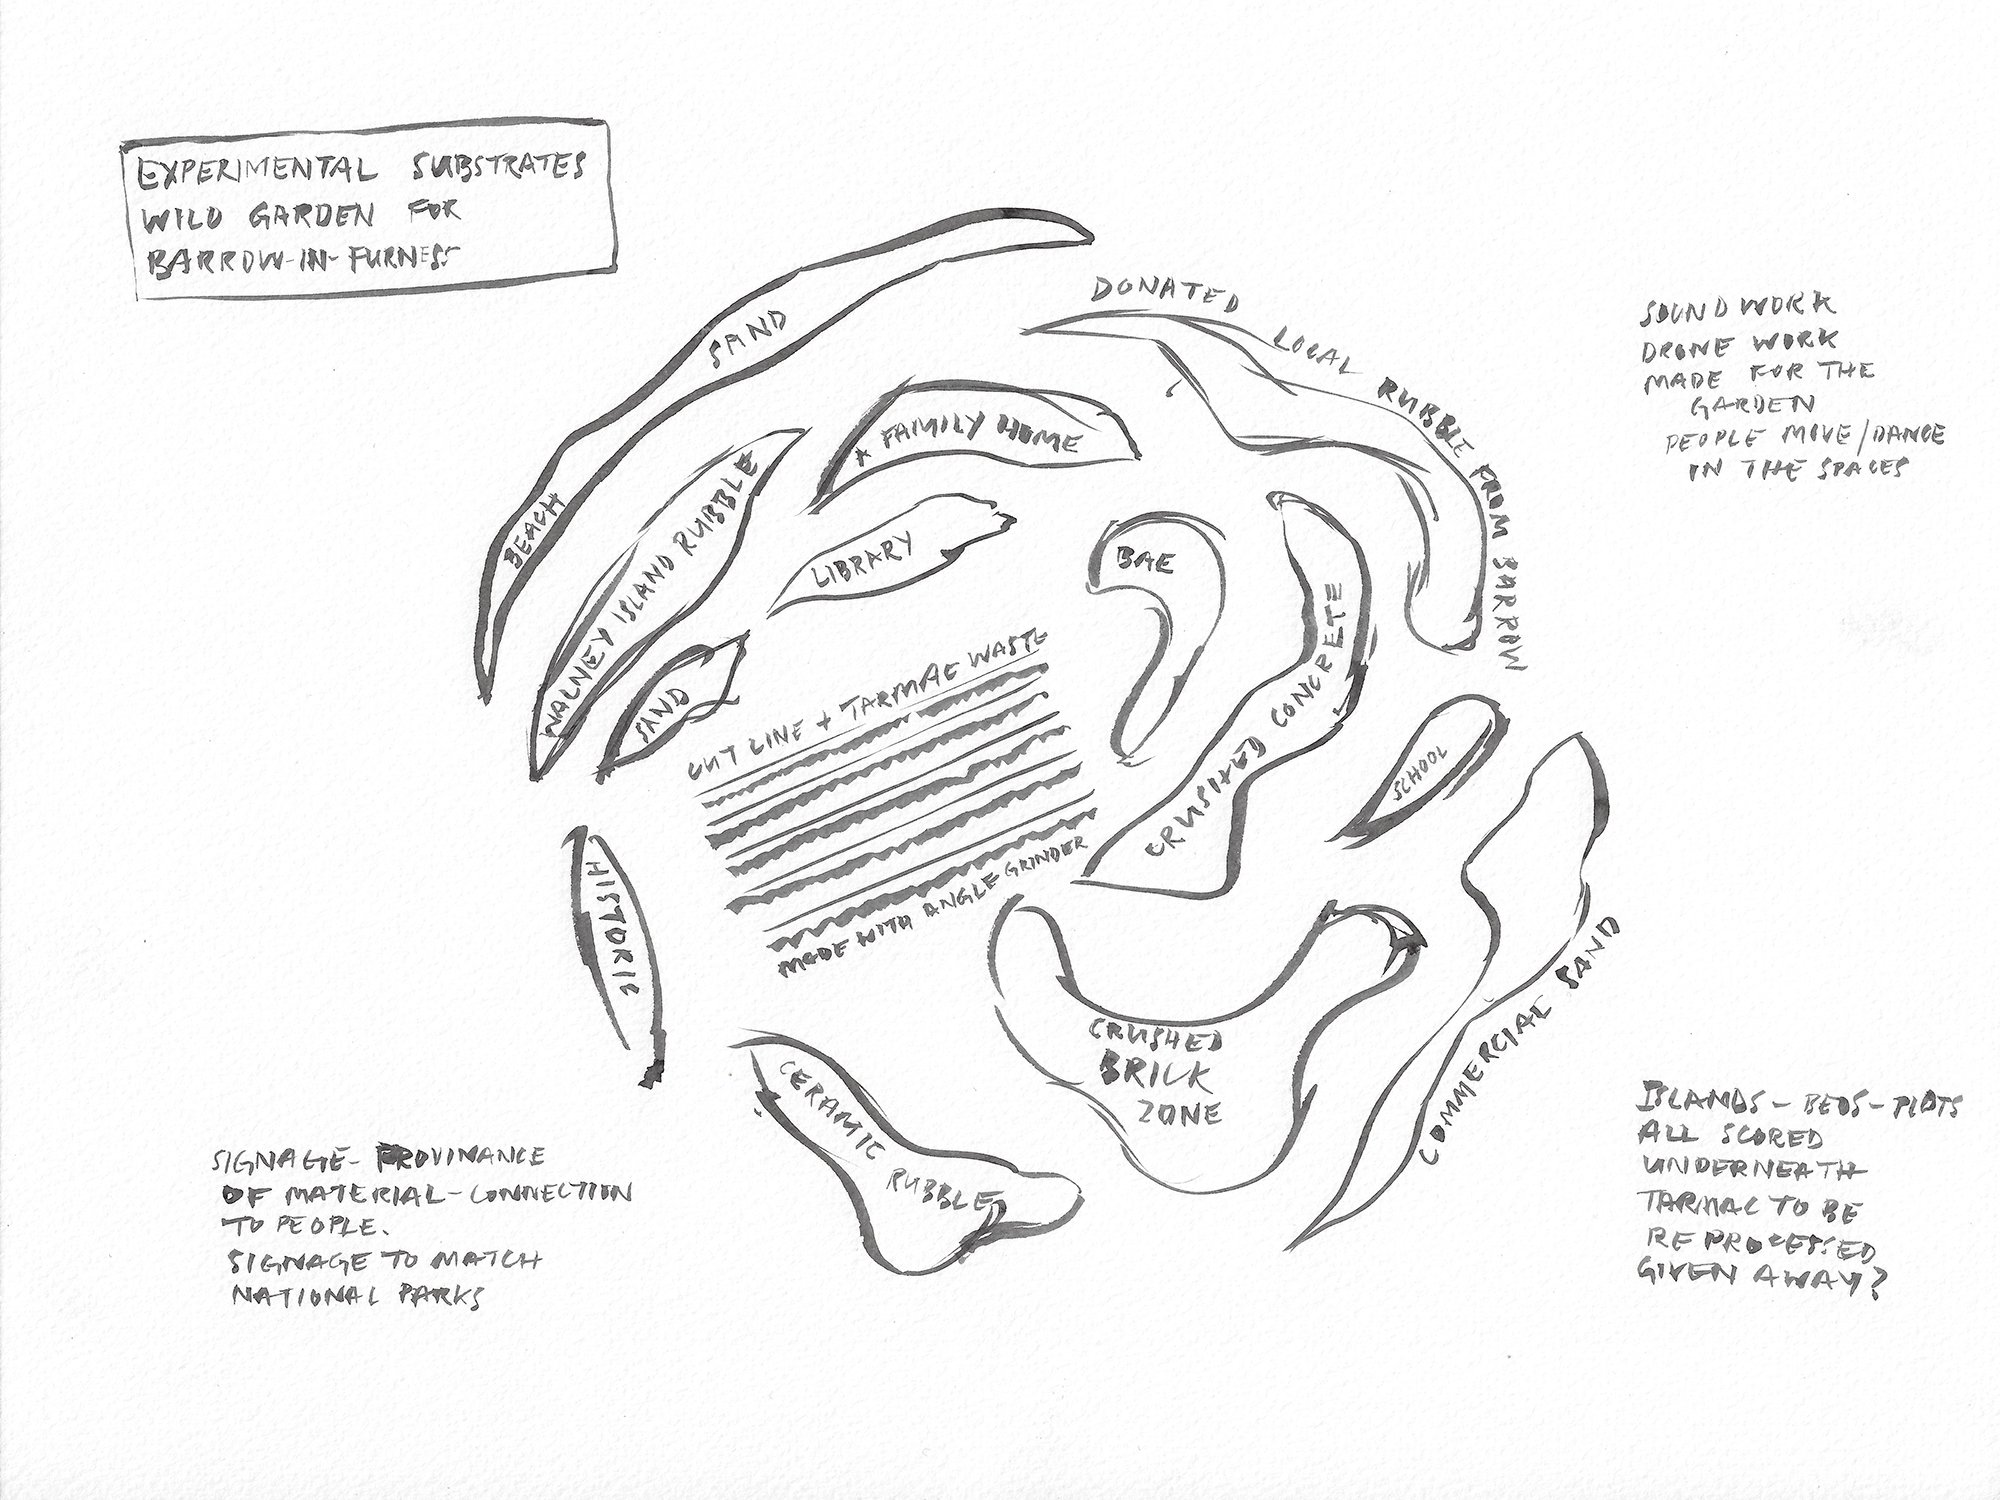 EXPERIMENTAL SUBSTRATES
WILD GARDEN FOR
BARROW-IN-FURNESS
BEACH SAND
DONATED LOCAL RUBBLE FROM BARROW
SOUND WORK
DRONE WORK
MADE FOR THE
GARDEN
PEOPLE MOVE/DANCE
IN THE SPACES
WALNEY ISLAND RUBBLE
* FAMILY HOME
LIBRARY
BAE
SAND
CUT LINE + TARMAC WASTE
MADE WITH ANGLE GRINDER
CRUSHED CONCRETE
SCHOOL
HISTORIC
COMMERCIAL SAND
CRUSHED
BRICK
ZONE
CERAMIC RUBBLE
SIGNAGE - PROVINANCE
OF MATERIAL - CONNECTION
TO PEOPLE.
SIGNAGE TO MATCH
NATIONAL PARKS
ISLANDS - BEDS - PLOTS
ALL SCORED
UNDERNEATH
TARMAC TO BE
REPROCESSED
GIVEN AWAY?